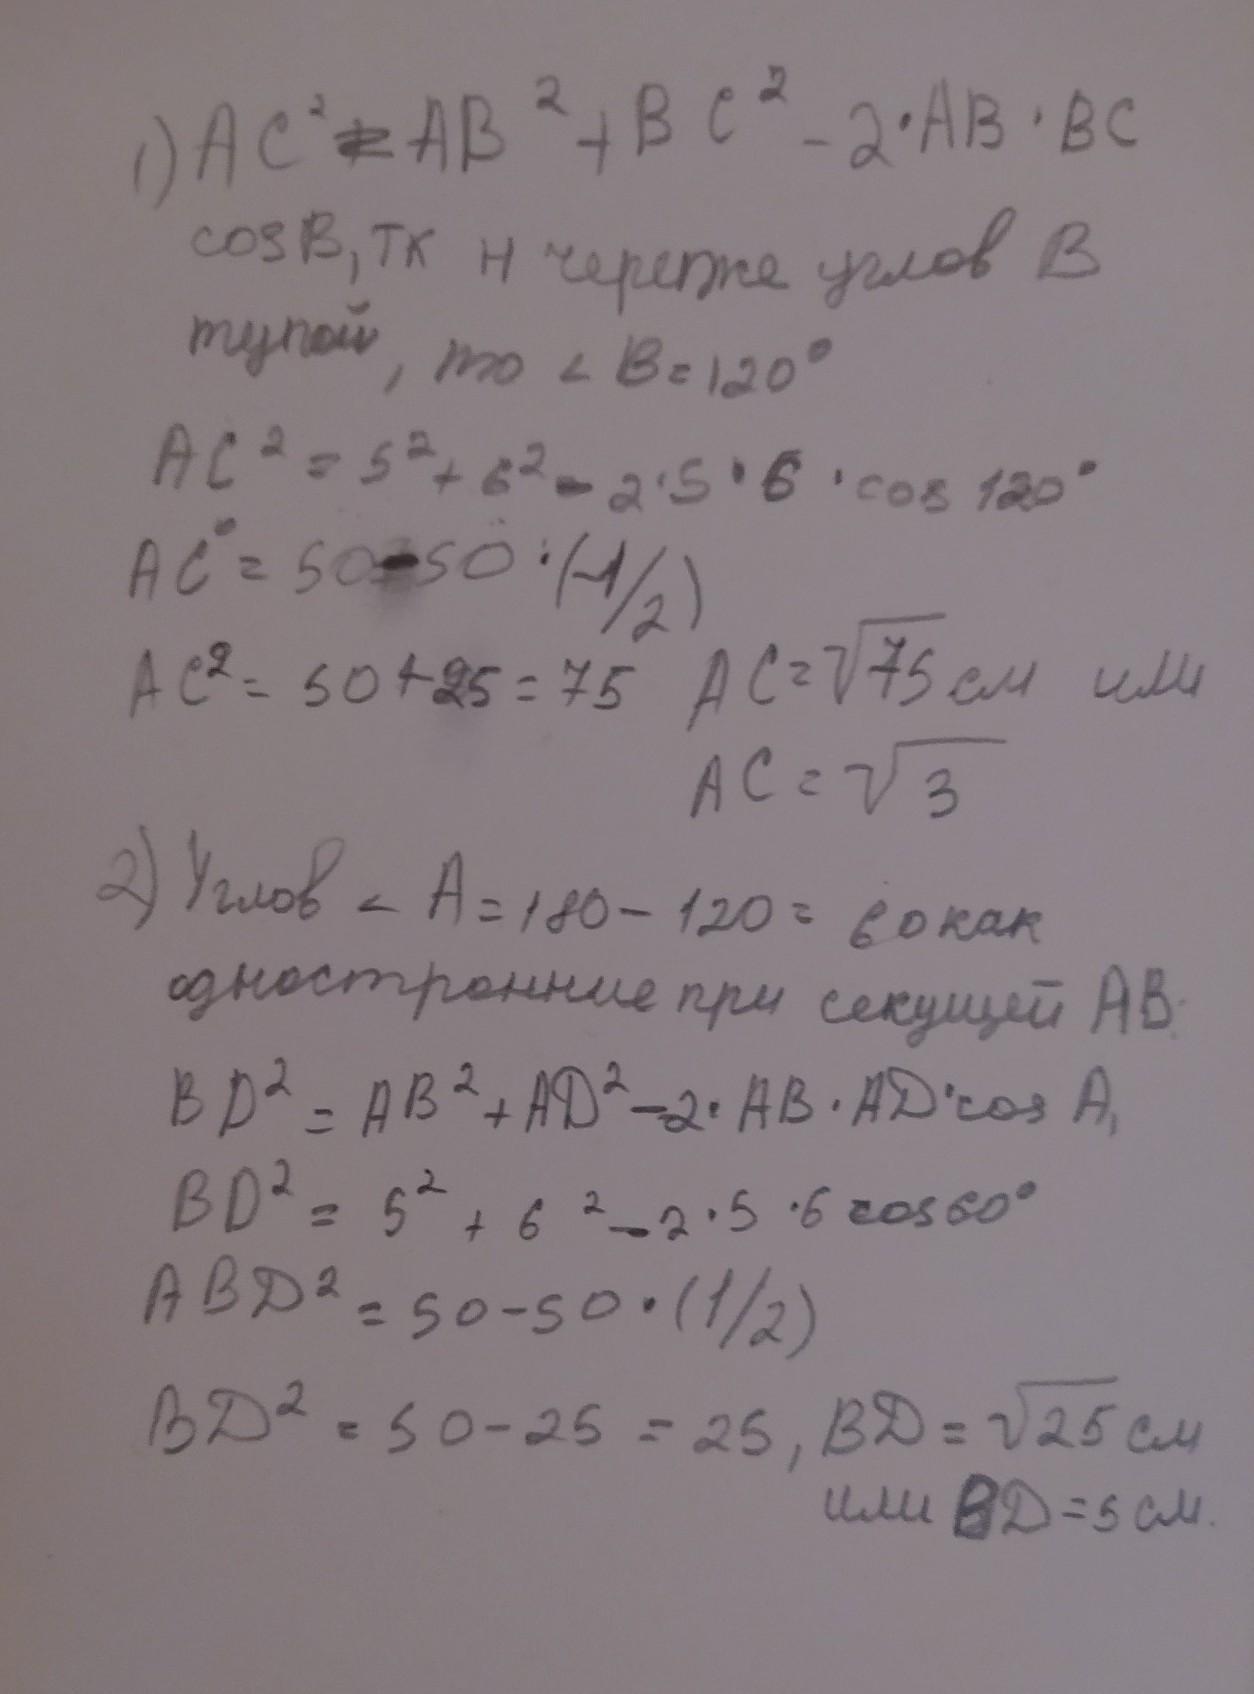 1) AC² = AB² + BC² - 2·AB·BC
cosB, тк н череже углов B
тупой, то < B = 120°
AC² = 5² + 6² - 2·5·6·cos 120°
AC² = 50 - 50·(-1/2)
AC² = 50 + 25 = 75 AC = √75 см или
AC = √3
2) Углов < A = 180 - 120 = 60 как
одностронние при секущей AB.
BD² = AB² + AD² - 2·AB·AD·cos A,
BD² = 5² + 6² - 2·5·6 cos60°
ABD² = 50 - 50·(1/2)
BD² = 50 - 25 = 25, BD = √25 см
или BD = 5 см.